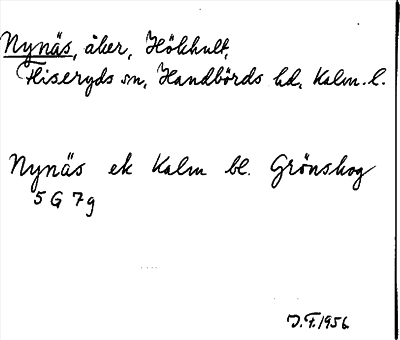 Nynäs, åker, Hökhult,
Fliseryds sn, Handbörds hd, Kalm. l.
Nynäs ek Kalm bl. Grönskog
5 G 7 g
J.F. 1956